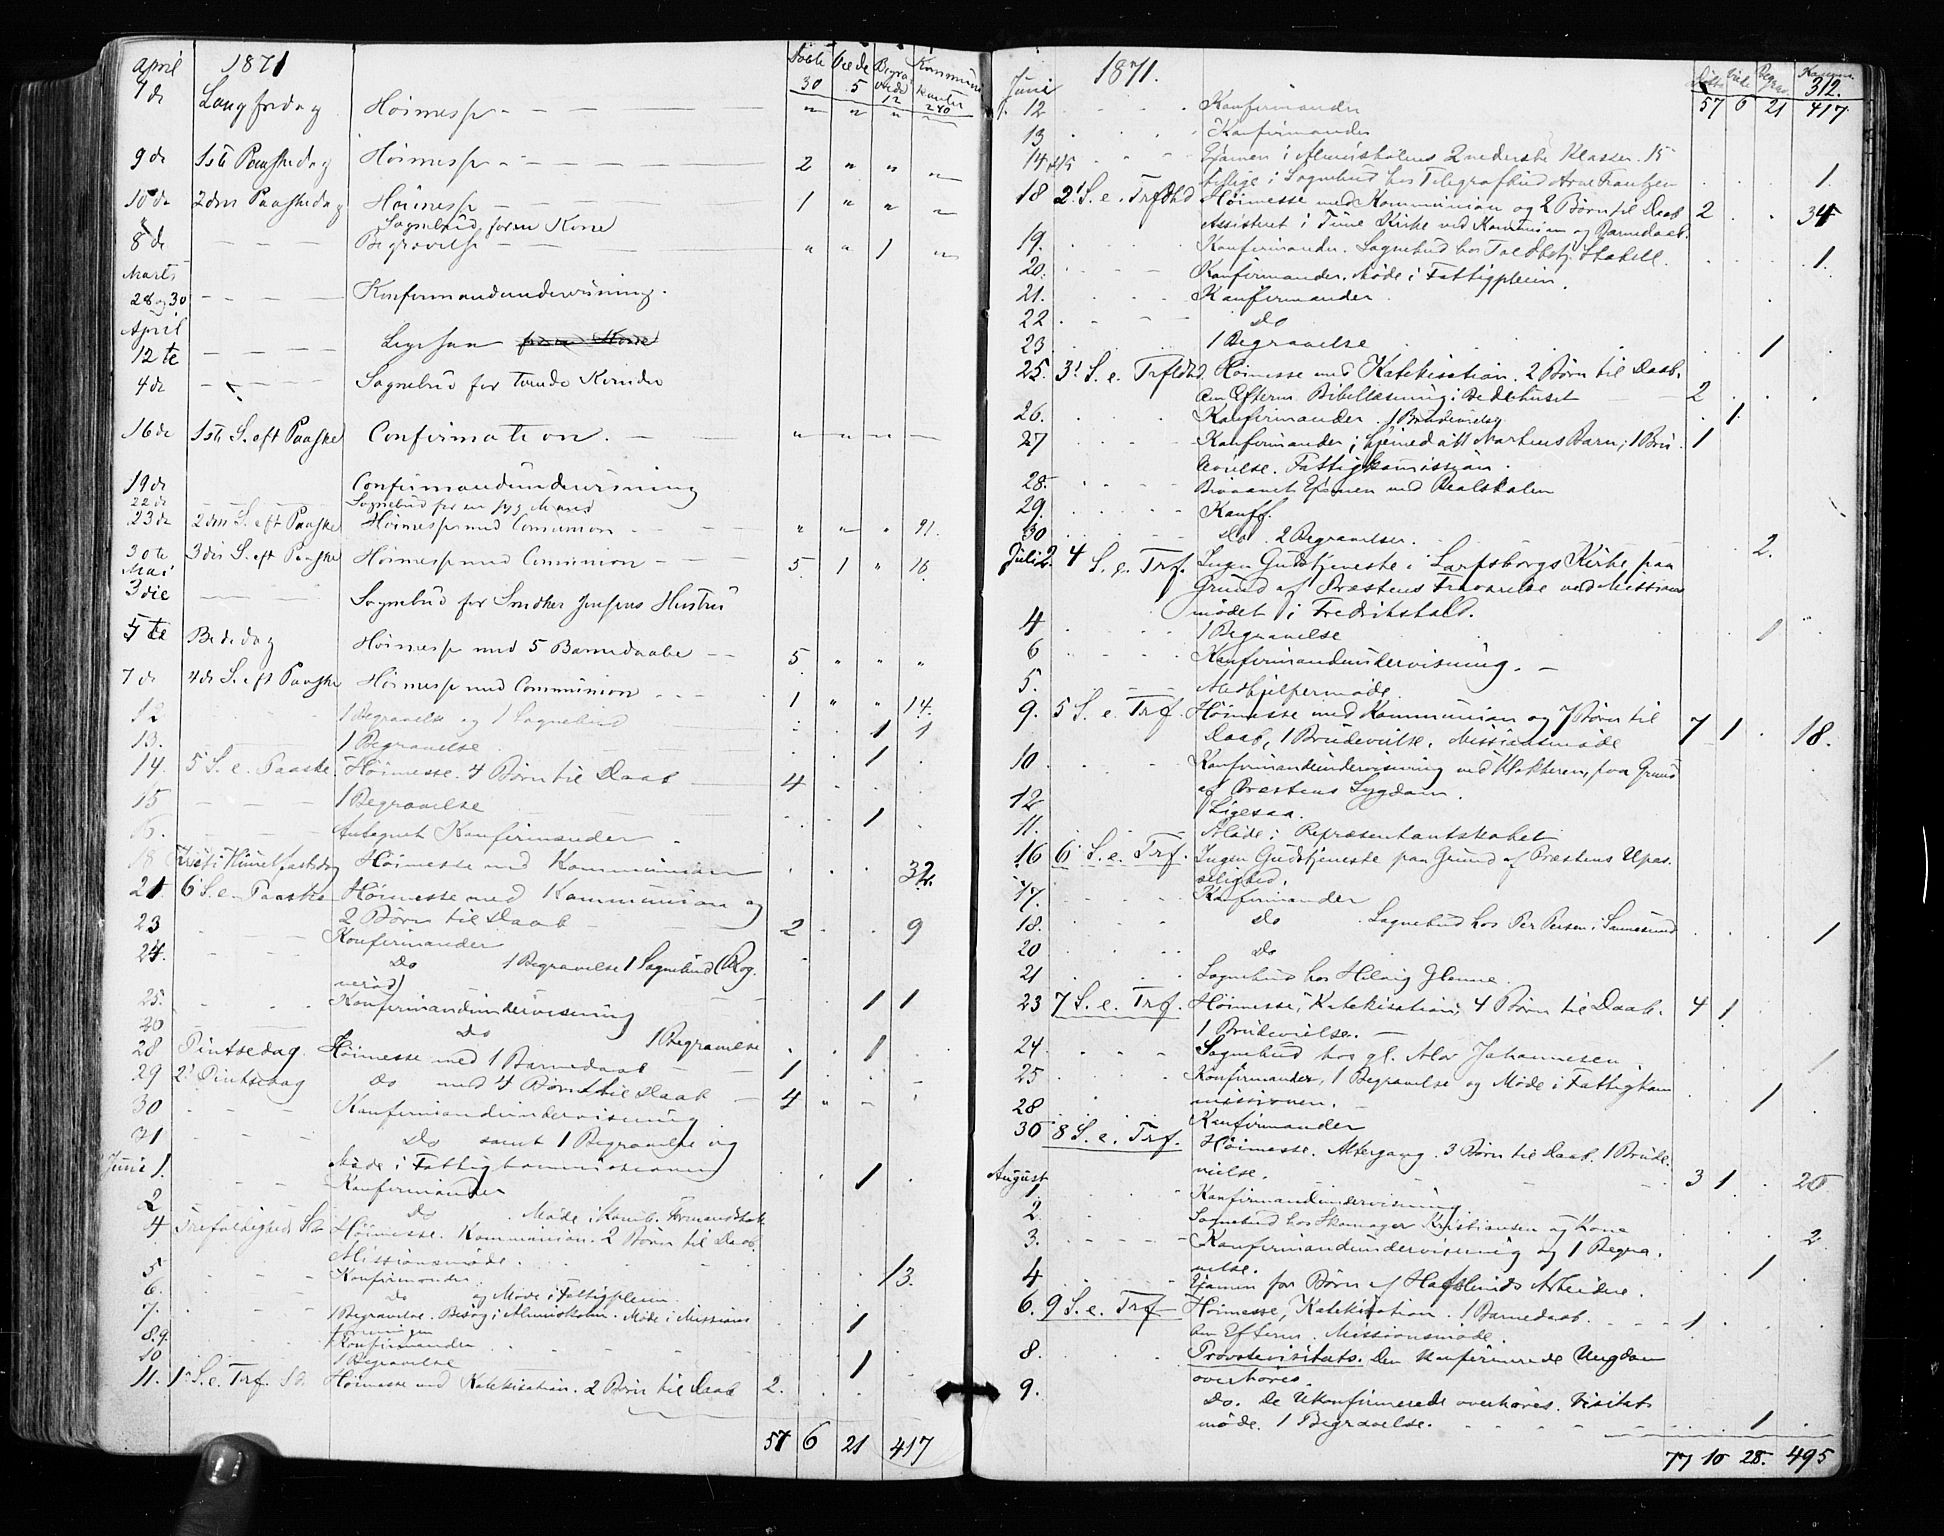 April 1871 Døbte Viede Begravede Kommunikanter
7de Langfredag Høimesse 30 5 12 240
9de 1ste Paaskedag Høimesse 2 " "
10de 2den Paaskedag Høimesse 1 " "
Sognebud for en Kone
8de Begravelse " " 1
Marts
28 og 30 Konfirmandundervisning.
April
12te Ligesaa
4de Sognebud for Kvinde
16de 1ste S. eft Paaske Confirmation.
19de Confirmandundervisning
22de Sognebud for en syg Mand
23de 2den S. eft Paaske Høimesse med Comunion " " " 91.
30te 3die S. eft Paaske Høimesse med Comunion 5 1 " 16
Mai
3die Sognebud for Snedker Jensens Hustru
5te Bededag Høimesse med 5 Barnedaabe 5 " " "
7de 4de S. eft Paaske Høimesse med Communion 1 " " 14.
12 1 Begravelse og 1 Sognebud 1 1
13. 1 Begravelse 1
14. 5 S. e. Paaske. Høimesse. 4 Børn til Daab 4
15 1 Begravelse 1
16. Antegnet Konfirmander
18 Kristi Himmelfartsdag Høimesse med Kommunion 32.
21 6 S. e. Paaske Høimesse med Kommunion og
2 Børn til Daab 2 9
23 Konfirmander
24. Do 1 Begravelse 1 Sognebud (Rog-
nerød) 1 1
25. Konfirmandundervisning
26 Do 1 Begravelse 1
28 Pintsedag Høimesse med 1 Barnedaab 1
29 2' Pintsedag Do med 4 Børn til Daab 4
30 Konfirmandundervisning
31 Do samt 1 Begravelse og
Møde i Fattigkommissionen 1
Juni 1. Konfirmander
2 Do. Møde i Komb. Formandskab
4 Trefoldigheds S. Høimesse. Kommunion. 2 Børn til Daab.
Missionsmøde. 13.
5 Konfirmander
6. Do og Møde i Fattigpleien
7. 1 Begravelse. Besøg i Almueskolen. Møde i Missions
foreningen 1
8.9. Konfirmander
10 1 Begravelse 1
11. 1' S. e. Trf. Høimesse med Katekisation. 2 Børn til Daab 2.
57 6 21 417
1871.
Juni 312.
12 Konfirmander 57 6 21 417
13 Konfirmander
14 & 15 Exjamen i Almueskolens 2 nederste Klasser. 15
tillige i Sognebud hos Telegrafbud Arne Frantzen 1.
18 2' S. e. Trfdhd Høimesse med Kommunion og 2 Børn til Daab 2 34
Assisteret i Tune Kirke ved Kommunion og Barnedaab.
19. Konfirmander. Sognebud hos Toldbetj. Stabell. 1.
20. Konfirmander. Møde i Fattigpleien.
21. Konfirmander
22 Do
23 1 Begravelse 1
25. 3' S. e. Trfldhd. Høimesse med Katekisation. 2 Børn til Daab.
Om Efterm. Bibellæsning i Bedehuset 2
26. Konfirmander. 1 Brudevielse 1.
27 Konfirmander; Hjemedøbt Martins Barn; 1 Bru- 1
devielse. Fattigkommission.
28. Bivaanet Exjamen ved Realskolen
29. Konff.
30 Do. 2 Begravelser. 2.
Juli 2. 4 S. e. Trf. Ingen Gudstjeneste i Sarpsborgs Kirke paa
Grund af Præstens Fraværelse ved Missions
mødet i Fredrikshald.
4 1 Begravelse 1
6 Konfirmandundervisning.
5. Medhjelpermøde
9. 5 S. e. Trf. Høimesse med Kommunion og 7 Børn til
Daab, 1 Brudevielse. Missionsmøde 7 1 18.
10. Konfirmandundervisning ved Klokkeren, paa Grund
af Præstens Sygdom.
12 Ligesaa.
11. Møde i Repræsentantskabet
16 6 S. e. Trf. Ingen Gudstjeneste paa Grund af Præstens Upas-
selighed.
17. Konfirmander
18. Do Sognebud hos Per Persen i Sannesund 1
20 Do
21 Sognebud hos Helvig Glenne.
23 7 S. e. Trf. Høimesse, Katekisation, 4 Børn til Daab. 4 1
1 Brudevielse.
24. Sognebud hos gl. Johannesen 1
25 Konfirmander, 1 Begravelse og Møde i Fattigkom
missionen. 1
28 Konfirmander
30 8 S. e. Trf. Høimesse. Altergang. 3 Børn til Daab. 1 Brude-
vielse. 3 1 20
August
1. Konfirmandundervisning
2. Sognebud hos Skomager Kristiansen og Kone 2
3. Konfirmandundervisning og 1 Begra-
velse. 1
4 Exjamen for Børn af Hafslunds Arbeidere.
6. 9 S. e. Trf Høimesse, Katekisation. 1 Barnedaab. 1
Om Efterm. Missionsmøde.
8. Provstevisitats. Den konfirmerede Ungdom
overhøres.
9. Do. De Ukonfirmerede overhøres. Visitats
møde. 1 Begravelse. 1
77 10 28. 495